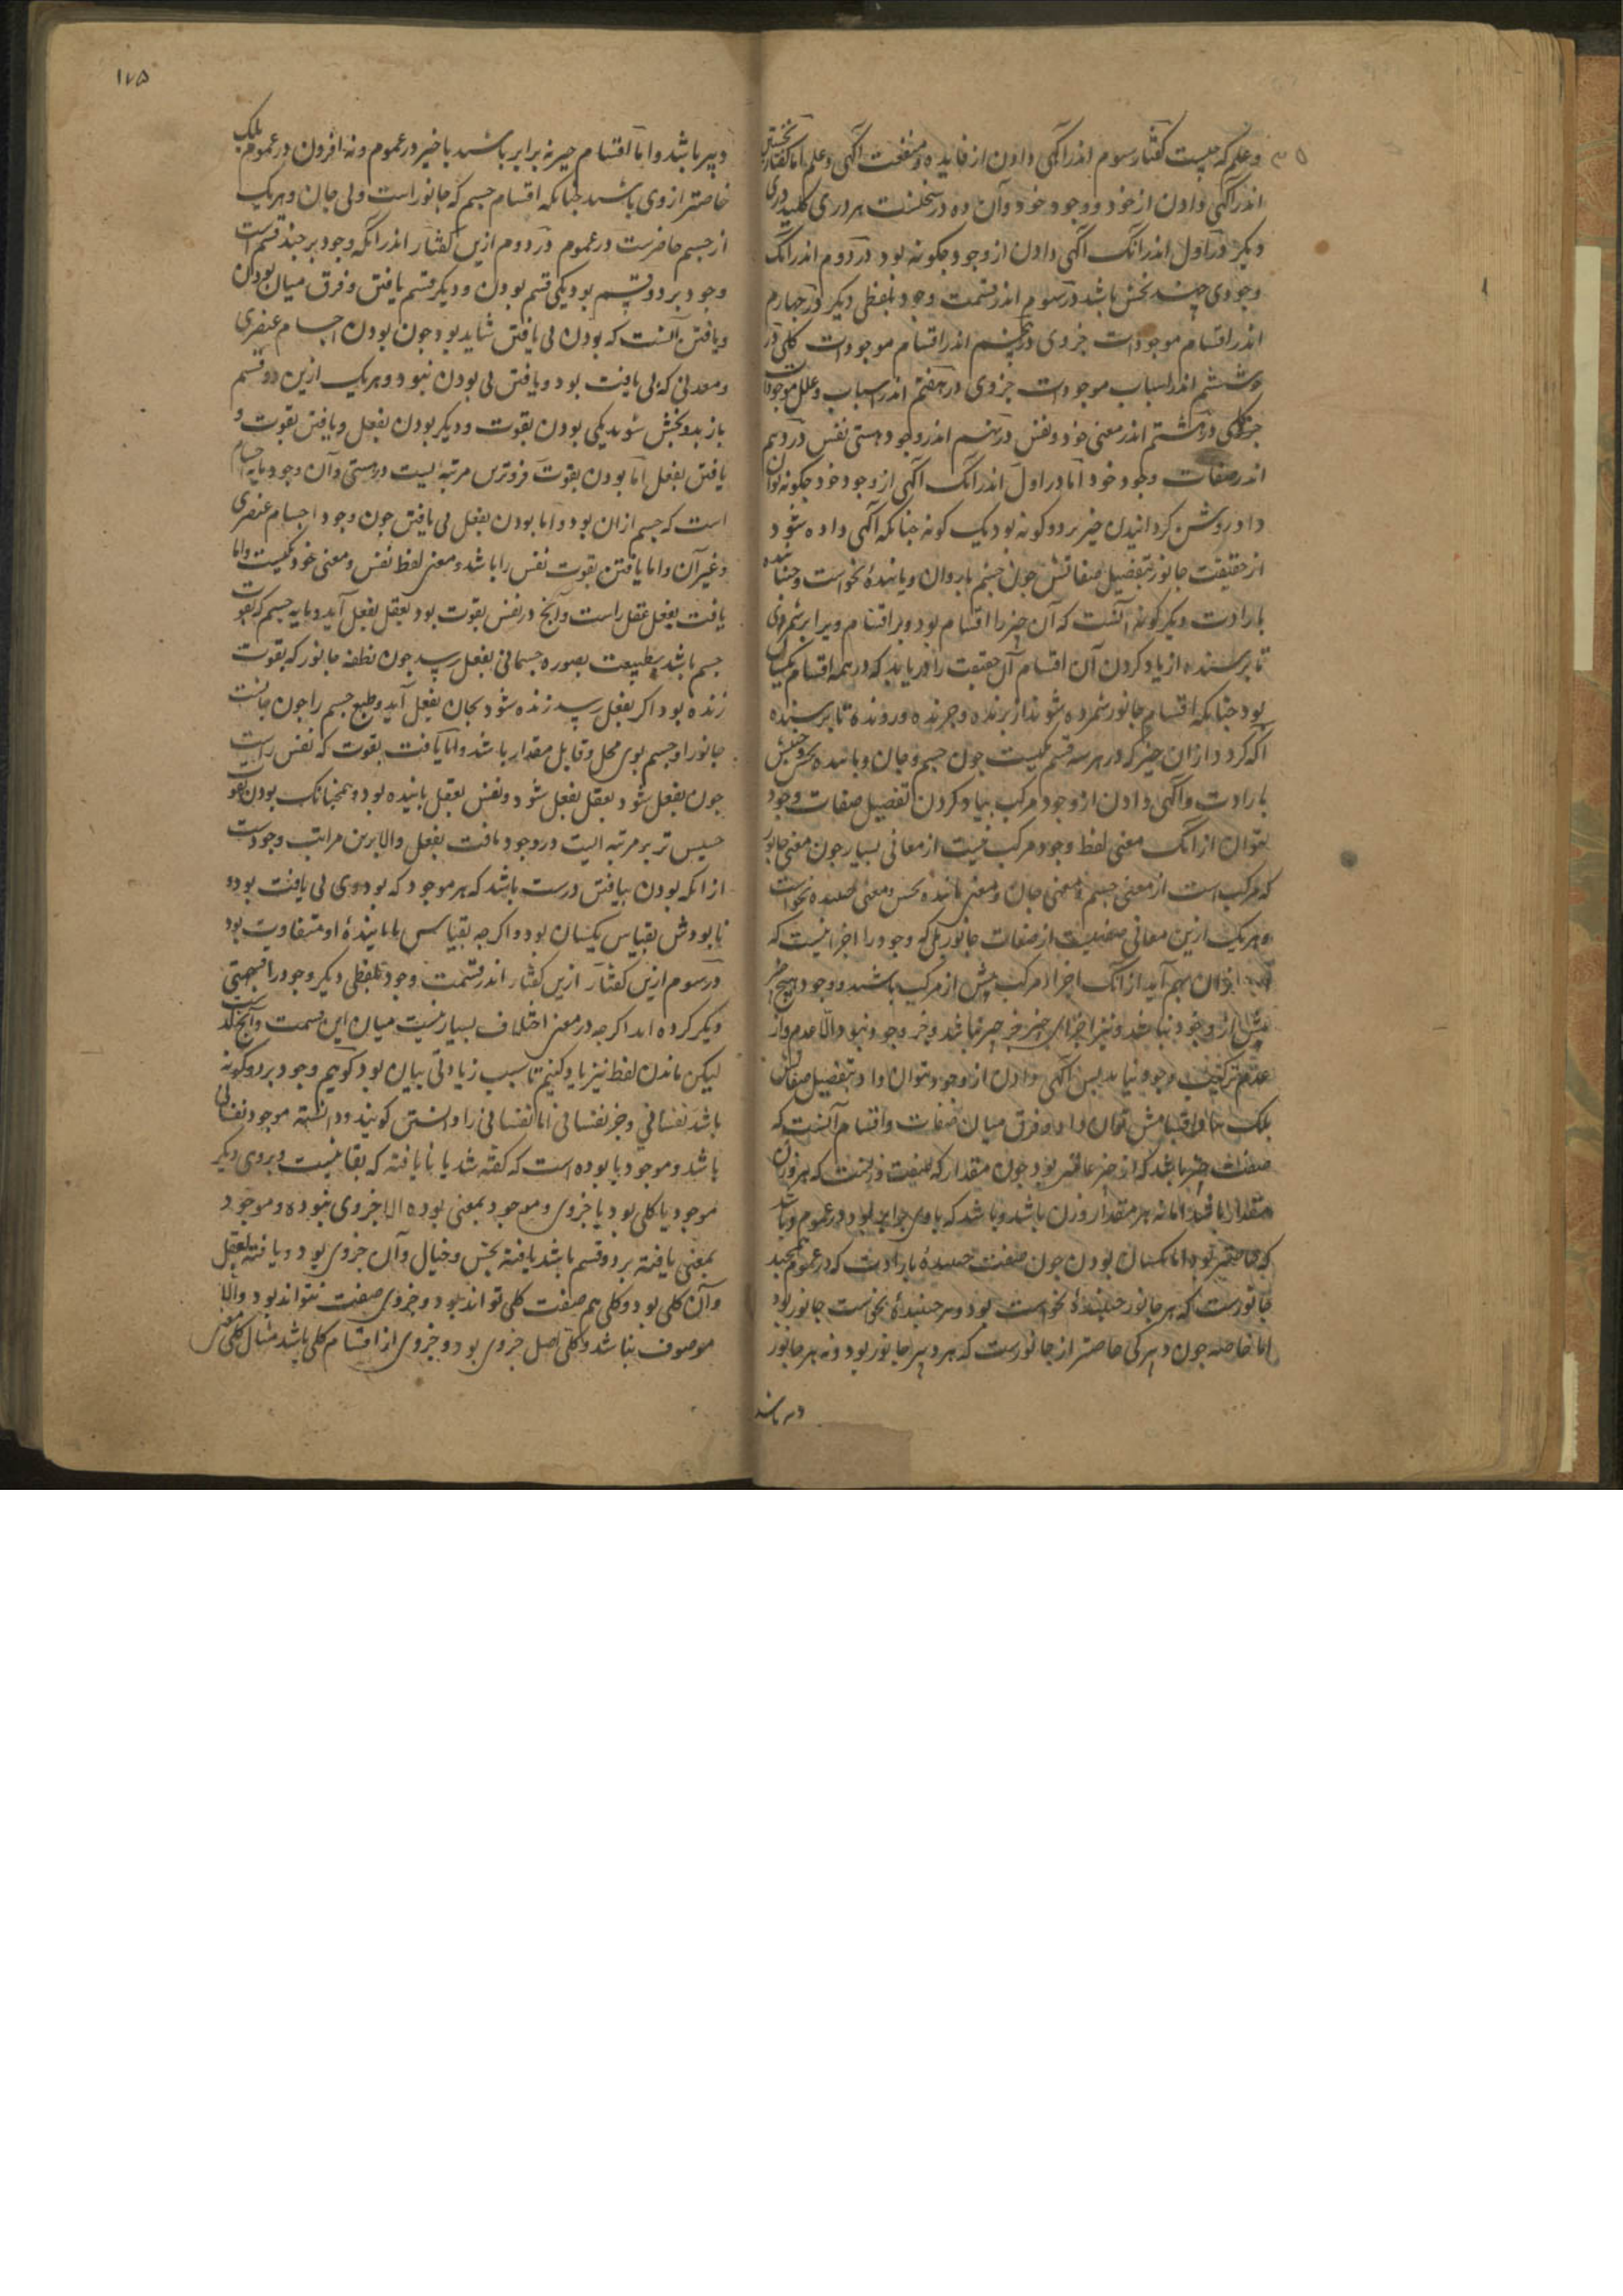 و علم که چیست گفتار سوم اندر آگهی دادن از فایده و منفعت آگهی و علم اما گفتار نخستین
اندر آگهی دادن از خود و وجود خود و آن ده در سخنست هر دری کلید دری
دیگر در اول اندر آنک آگهی دادن از وجود چگونه بود در دوم اندر آنک
وجودی چند بخش باشد در سوم اندر قسمت وجود بلفظی دیگر در چهارم
اندر اقسام موجودات جزوی در پنجم اندر اقسام موجودات کلی در
ششم اندر اسباب موجودات جزوی در هفتم اندر اسباب و علل موجودات
کلی در هشتم اندر معنی خود و نفس در نهم اندر وجود و هستی نفس در دهم
اندر صفات وجود خود اما در اول اندر آنک آگهی از وجود خود چگونه توان
داد روشن گردانیدن چیز بر دو گونه بود یک گونه چنانکه آگهی داده شود
از حقیقت جانور بتفصیل صفاتش چون جسم باروان و یابندهٔ بخواست و جنبنده
بارادت و دیگر گونه آنست که آن چیز را اقسام بود و بر اقسام ویرا بر شمری
تا پرسنده از یاد کردن آن اقسام آن حقیقت را دریابد که در همه اقسام یکسان
بود چنانکه اقسام جانور شمرده شوند از پرنده و چرنده و رونده تا پرسنده
آگه گردد از آن چیز که در هر سه قسم یکیست چون جسم و جان و یابنده بحس و جنبش
بارادت و آگهی دادن از وجود مرکب بیاد کردن تفصیل صفات وجود
نتوان از آنک معنی لفظ وجود مرکب نیست از معانی بسیار چون معنی جانور
که مرکب است از معنی جسم و معنی جان و معنی یابندهٔ بحس و معنی جنبنده بخواست
و هر یک ازین معانی صفتیست از صفات جانور بلی که وجود را اجزا نیست که
از آن بهم آید از آنک اجزاء مرکب پیش از مرکب باشند و وجود هیچ چیز
پیش از وجود نباشد و نیز اجزای چیز جز چیز باشد و جز وجود نبود والا عدم و از
عدم ترکیب وجود نیاید پس آگهی دادن از وجود نتوان داد بتفصیل صفاتش
بلک باقسامش توان داد و فرق میان صفات و اقسام آنست که
صفات چیز باشد که از چیز عامتر بود چون مقدار که صفت وزنست که هر وزن
مقدار باشد اما نه هر مقدار وزن باشد و باشد که با وی برابر بود در عموم و نباشد
که خاصتر بود اما یکسان بودن چون صفت جنبندهٔ بارادت که در عموم همچند
جانورست که هر جانور جنبندهٔ بخواست بود و هر جنبندهٔ بخواست جانور بود
اما خاصه چون دبیری خاصتر از جانورست که هر دبیر جانور بود و نه هر جانور
دبیر باشد
۱۷۵
دبیر باشد و اما اقسام چیز نه برابر باشند با چیز در عموم و نه افزون در عموم بلک
خاصتر از وی باشند چنانکه اقسام جسم که جانور است و بی جان و هر یک
از جسم خاصترست در عموم در دوم ازین گفتار اندر آنکه وجود بر چند قسم است
وجود بر دو قسم بود یکی قسم بودن و دیگر قسم یافتن و فرق میان بودن
و یافتن آنست که بودن بی یافتن شاید بود چون بودن اجسام عنصری
و معدنی که بی یافت بود و یافتن بی بودن نبود و هر یک ازین دو قسم
باز بدو بخش شوند یکی بودن بقوت و دیگر بودن بفعل و یافتن بقوت و
یافتن بفعل اما بودن بقوت فروترین مرتبه ایست در هستی و آن وجود مایه اجسام
است که جسم از آن بود و اما بودن بفعل بی یافتن چون وجود اجسام عنصری
و غیر آن و اما یافتن بقوت نفس را باشد و معنی لفظ نفس و معنی خود یکیست و اما
یافت بفعل عقل راست و آنچ در نفس بقوت بود بعقل بفعل آید و مایه جسم که بقوت
جسم باشد بطبیعت بصوره جسمانی بفعل رسد چون نطفه جانور که بقوت
زنده بود اگر بفعل رسد زنده شود بجان بفعل آید و طبع جسم را چون جانست
جانور او جسم بوی محل و قابل مقدار باشد و اما یافت بقوت که نفس راست
چون بفعل شود بعقل بفعل شود و نفس بعقل یابنده بود و همچنانک بودن بقوت
خسیس تر بر مرتبه ایست در وجود یافت بفعل والاترین مراتب وجودست
از آنکه بودن بیافتن درست باشد که هر موجود که بود وی بی یافت بود و
نابودش بقیاس یکسان بود و اگر چه بقیاس با یابندهٔ او متفاوت بود
در سوم ازین گفتار ازین گفتار اندر قسمت وجود بلفظی دیگر وجود را قسمتی
دیگر کرده اند اگر چه در معنی اختلاف بسیار نیست میان این قسمت و آنچ گذشت
لیکن ماندن لفظ نیز یاد کنیم تا سبب زیادتی بیان بود گوییم وجود بر دو گونه
باشد نفسانی و جز نفسانی اما نفسانی را دانستن گویند و دانسته موجود نفسانی
باشد و موجود یا بوده است که گفته شد یا یافته که بقا نیست و بروی دیگر
موجود یا کلی بود یا جزوی و موجود بمعنی بوده الا جزوی نبوده و موجود
بمعنی یافته بر دو قسم باشد یافته بحس و خیال و آن جزوی بود و یافته بعقل
و آن کلی بود و کلی هم صفت کلی تواند بود و جزوی صفت نتواند بود والا
موصوف نباشد و کلی اصل جزوی بود و جزوی از اقسام کلی باشد مثال کلی معنی